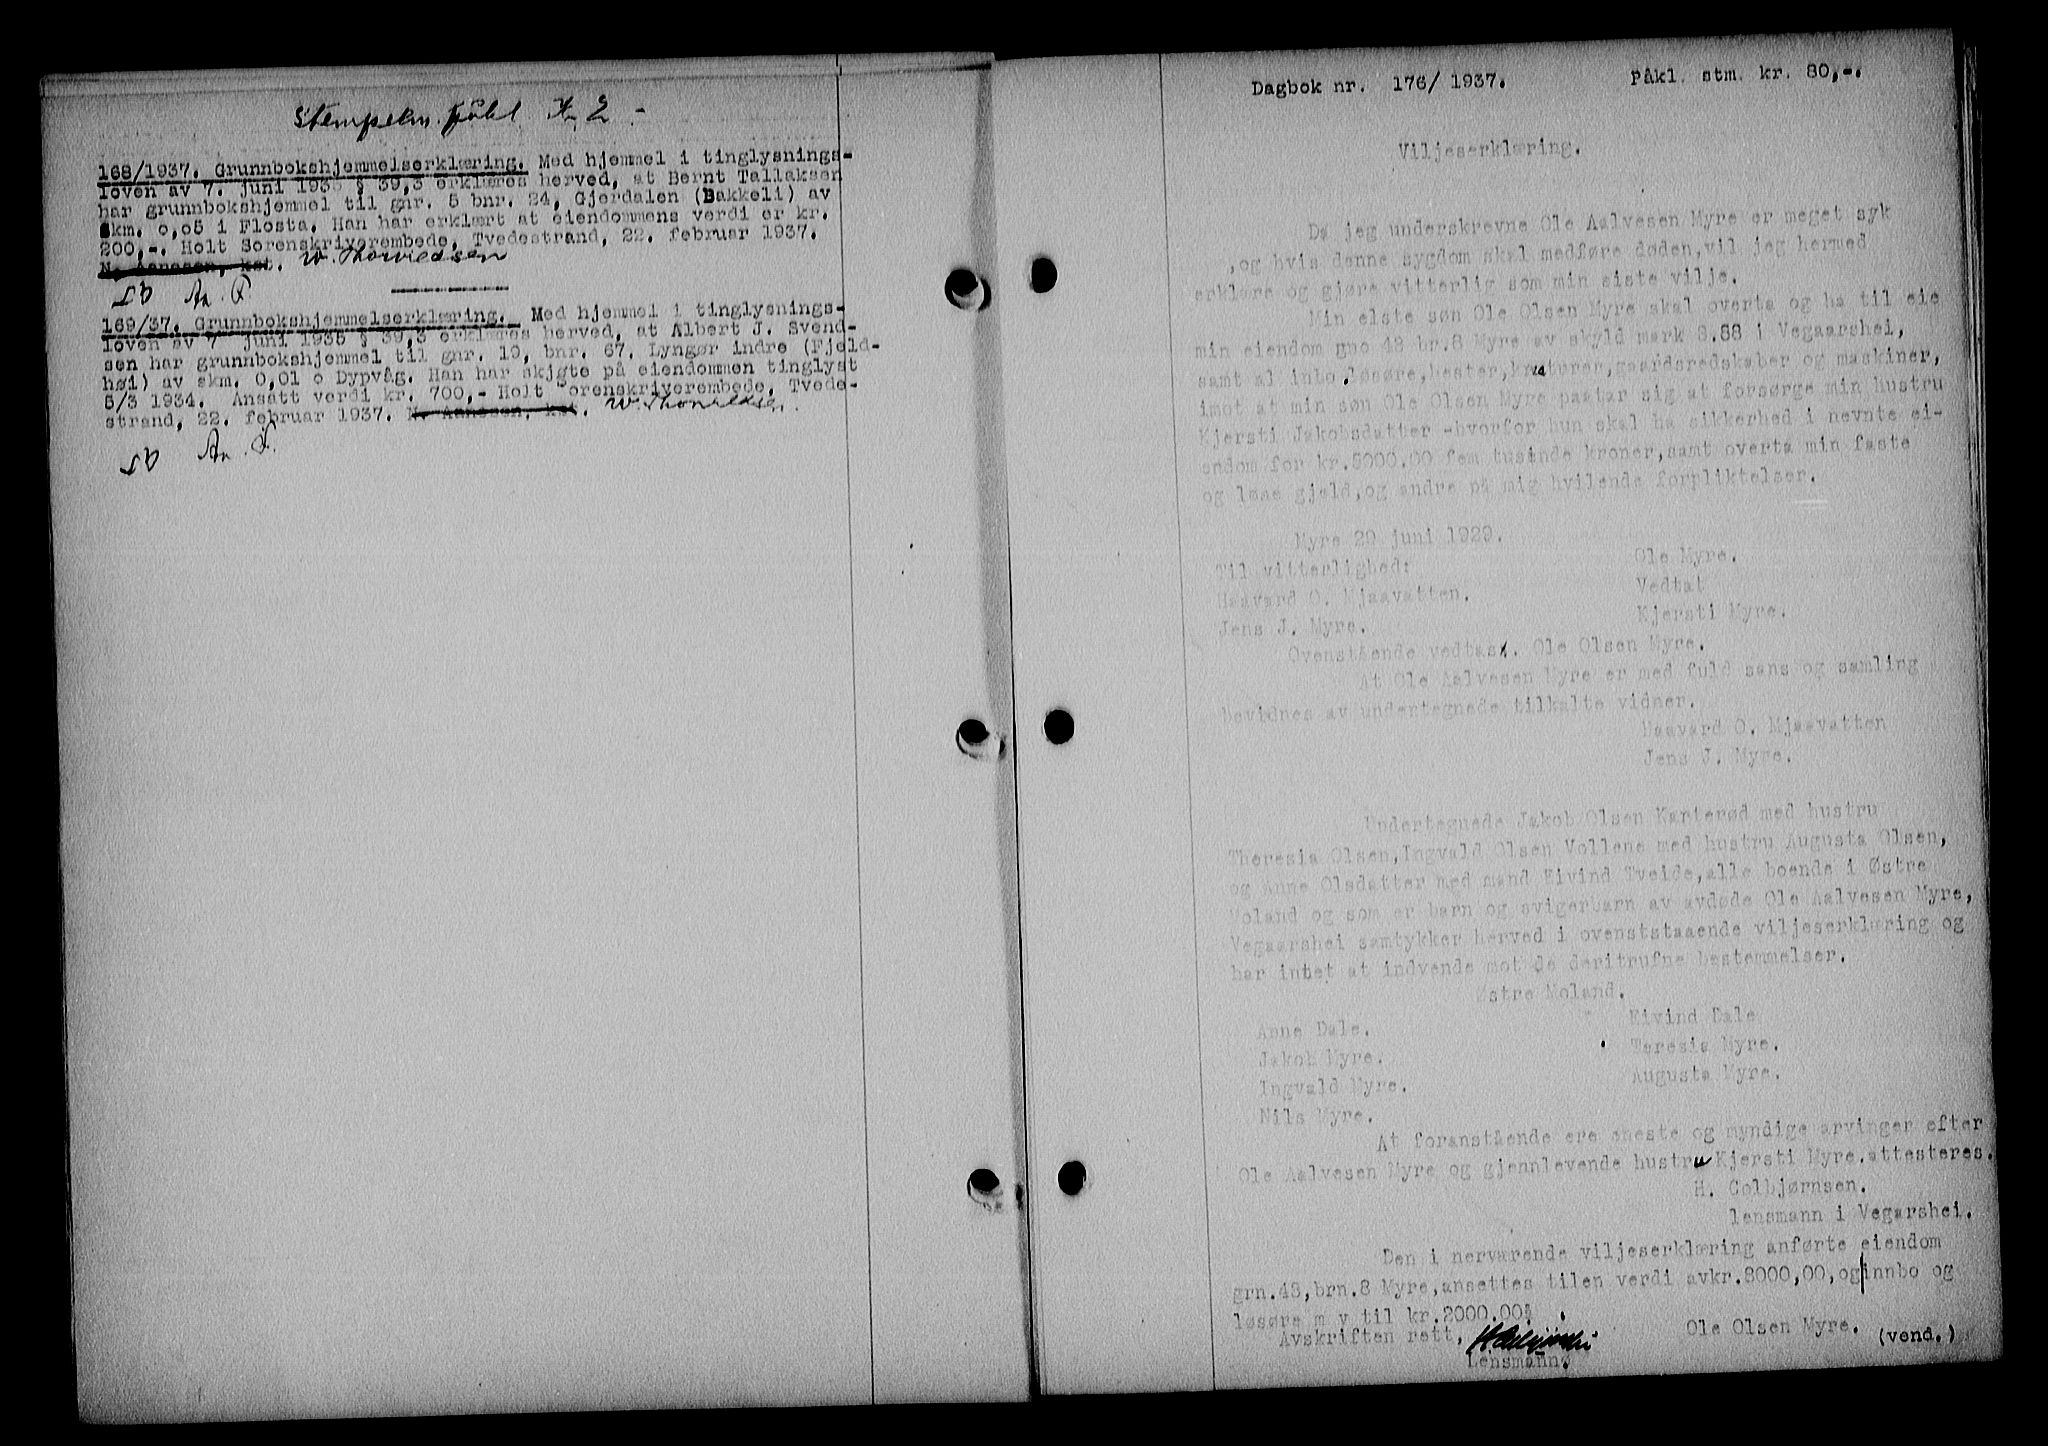 Stempelm. påkl. Kr 2 -
168/1937. Grunnbokshjemmelserklæring. Med hjemmel i tinglysnings-
loven av 7. juni 1935 § 39,3 erklæres herved, at Bernt Tallaksen
har grunnbokshjemmel til gnr. 5 bnr. 24, Gjerdalen (Bakkeli) av
skm. 0,05 i Flosta. Han har erklært at eiendommens verdi er kr.
200,-. Holt Sorenskriverembede, Tvedestrand, 22. februar 1937.
N. Aanesen, kst. W. Thorvildsen
169/37. Grunnbokshjemmelserklæring. Med hjemmel i tinglysnings-
loven av 7 juni 1935 § 39,3 erklæres herved, at Albert J. Svend-
sen har grunnbokshjemmel til gnr. 10, bnr. 67. Lyngør indre (Fjeld-
høi) av skm. 0,01 o Dypvåg. Han har skjøte på eiendommen tinglyst
5/3 1934. Ansatt verdi kr. 700,- Holt Sorenskriverembede, Tvede-
strand, 22. februar 1937. N. Aanesen, kst. W. Thorvildsen.
Dagbok nr. 176/ 1937. Påkl. stm. kr. 80,-.
Viljeserklæring.
Da jeg underskrevne Ole Aalvesen Myre er meget syk
,og hvis denne sygdom skal medføre døden,vil jeg hermed
erklære og gjøre vitterlig som min siste vilje.
Min elste søn Ole Olsen Myre skal overta og ha til eie
min eiendom gno 43 br.8 Myre av skyld mark 3.88 i Vegaarshei,
samt al inbo,løsøre,hester,kreaturer,gaardsredskaber og maskiner,
imot at min søn Ole Olsen Myre paatar sig at forsørge min hustru
Kjersti Jakobsdatter -hvorfor hun skal ha sikkerhed i nevnte ei-
endom for kr.5000.00 fem tusinde kroner,samt overta min faste
og løse gjeld,og andre på mig hvilende forpliktelser.
Myre 29 juni 1929.
Til vitterlighed: Ole Myre.
Haavard O. Mjaavatten. Vedtat
Jens J. Myre. Kjersti Myre.
Ovenstående vedtas. Ole Olsen Myre.
At Ole Aalvesen Myre er med fuld sans og samling
bevidnes av undertegnede tilkalte vidner.
Haavard O. Mjaavatten
Jens J. Myre.
Undertegnede Jakob Olsen Kanterød med hustru
Theresia Olsen,Ingvald Olsen Vollene med hustru Augusta Olsen,
og Anne Olsdatter med mand Eivind Tveide,alle boende i Østre
Moland og som er barn og svigerbarn av avdøde Ole Aalvesen Myre,
Vegaarshei samtykker herved i ovenststaaende viljeserklæring og
har intet at indvende mot de deritrufne bestemmelser.
Østre Moland.
Anne Dale. Eivind Dale
Jakob Myre. Teresia Myre.
Ingvald Myre. Augusta Myre.
Nils Myre.
At foranstående ere eneste og myndige arvinger efter
Ole Aalvesen Myre og gjennlevende hustru Kjersti Myre,attesteres.
H. Colbjørnsen.
lensmann i Vegarshei.
Den i nerværende viljeserklæring anførte eiendom
grn.43,brn.8 Myre,ansettes tilen verdi avkr.8000,00,oginnbo og
løsøre m v til kr.2000.00.
Ole Olsen Myre.
Avskriften rett, (vend.)
Lensmann